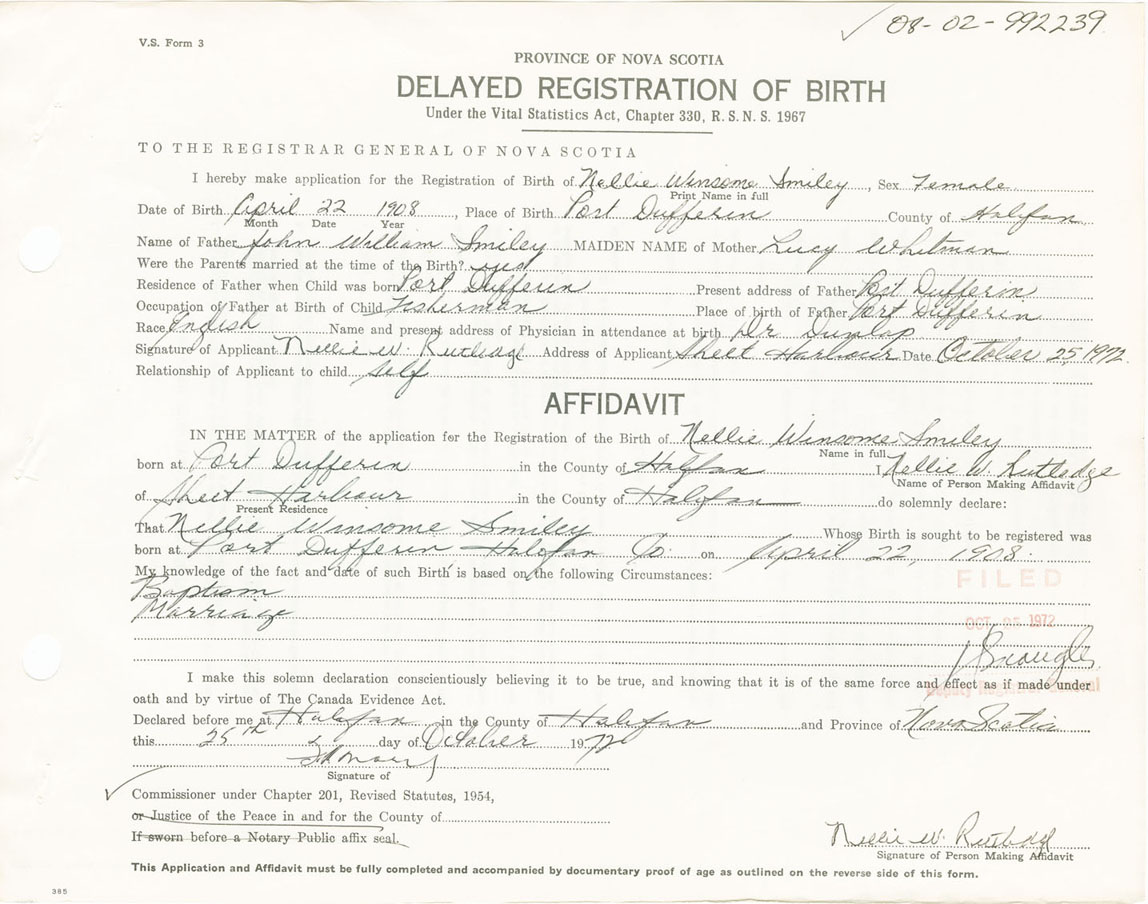 08-02-992239
V.S. Form 3
PROVINCE OF NOVA SCOTIA
DELAYED REGISTRATION OF BIRTH
Under the Vital Statistics Act, Chapter 330, R.S.N.S. 1967
TO THE REGISTRAR GENERAL OF NOVA SCOTIA
I hereby make application for the Registration of Birth of Nellie Winsome Smiley, Sex Female
Print Name in full
Date of Birth April 22 1908, Place of Birth Port Dufferin County of Halifax
Month Date Year
Name of Father John William Smiley MAIDEN NAME of Mother Lucy Whitman
Were the Parents married at the time of the Birth? yes
Residence of Father when Child was born Port Dufferin Present address of Father Port Dufferin
Occupation of Father at Birth of Child Fisherman Place of birth of Father Port Dufferin
Race English Name and present address of Physician in attendance at birth Dr Dunlap
Signature of Applicant Nellie W. Rutledge Address of Applicant Sheet Harbour Date October 25, 1972
Relationship of Applicant to child self
AFFIDAVIT
IN THE MATTER of the application for the Registration of the Birth of Nellie Winsome Smiley
Name in full
born at Port Dufferin in the County of Halifax I Nellie W Rutledge
Name of Person Making Affidavit
of Sheet Harbour in the County of Halifax do solemnly declare:
Present Residence
That Nellie Winsome Smiley Whose Birth is sought to be registered was
born at Port Dufferin Halifax Co. on April 22, 1908.
My knowledge of the fact and date of such Birth is based on the following Circumstances:
Baptism
FILED
Marriage
OCT 25 1972
I make this solemn declaration conscientiously believing it to be true, and knowing that it is of the same force and effect as if made under
Deputy Registrar General
oath and by virtue of The Canada Evidence Act.
Declared before me at Halifax in the County of Halifax and Province of Nova Scotia
this 25th day of October 1972
Signature of
Commissioner under Chapter 201, Revised Statutes, 1954,
or Justice of the Peace in and for the County of
If sworn before a Notary Public affix seal.
Nellie W. Rutledge
Signature of Person Making Affidavit
This Application and Affidavit must be fully completed and accompanied by documentary proof of age as outlined on the reverse side of this form.
385